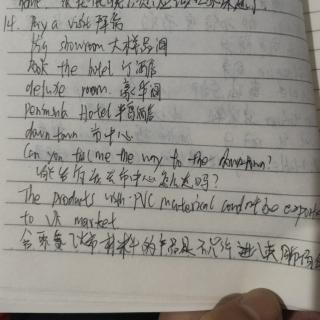 14. Pay a visit 拜访
big showroom 大样品间
book the hotel 订酒店
deluxe room. 豪华间
Peninsula Hotel 半岛酒店
downtown 市中心
Can you tell me the way to the downtown?
你能告诉去市中心怎么走吗?
The products with PVC material cannot be
to UK market.
材料的产品是不允许进入英国市场